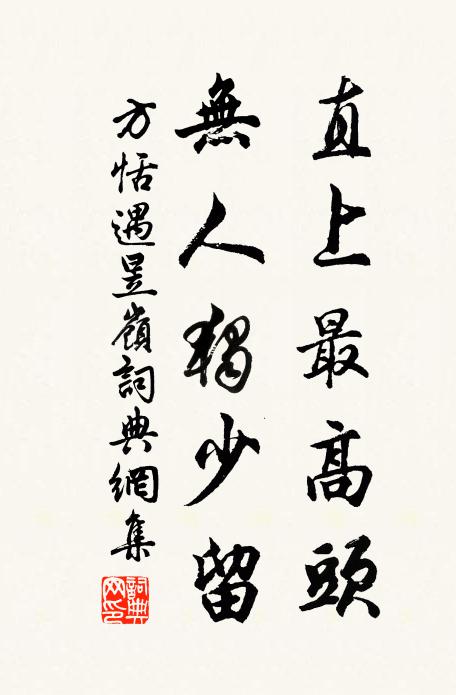 直上最高頭
無人獨少留
方恬過昱嶺詞典網集
詞典
网印